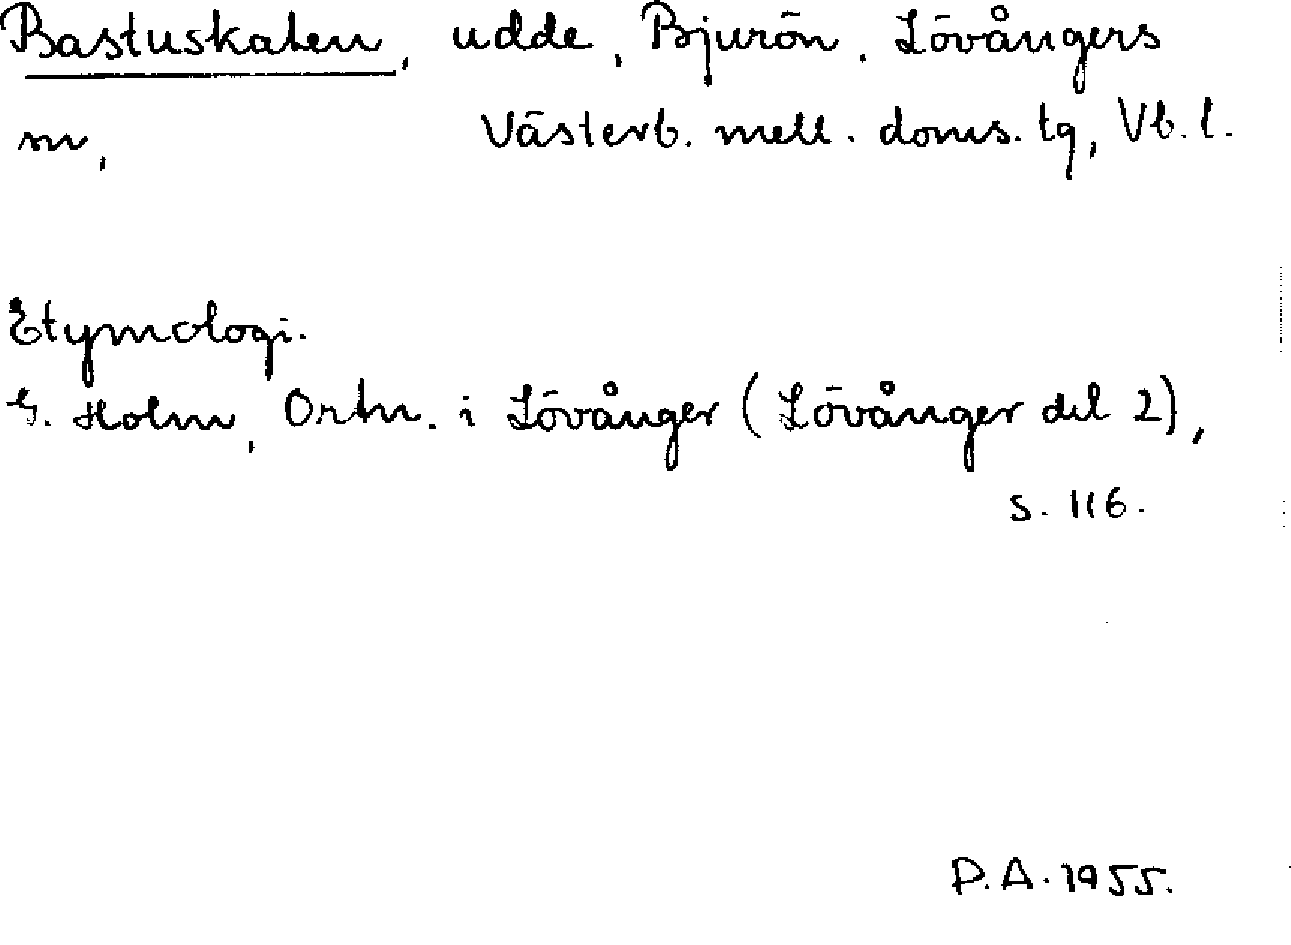 Bastuskaten, udde, Bjurön, Lövångers
sn, Västerb. mell. doms. tg, Vb. l.
Etymologi.
G. Holm, Ortn. i Lövånger (Lövånger del 2),
s. 116.
P.A. 1955.